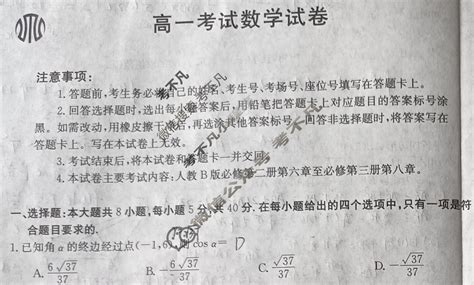 高一考试数学试卷
注意事项:
1.答题前,考生务必将自己的姓名、考生号、考场号、座位号填写在答题卡上。
2.回答选择题时,选出每小题答案后,用铅笔把答题卡上对应题目的答案标号涂
黑。如需改动,用橡皮擦干净后,再选涂其他答案标号。回答非选择题时,将答案写在
答题卡上。写在本试卷上无效。
3.考试结束后,将本试卷和答题卡一并交回。
4.本试卷主要考试内容:人教B版必修第二册第六章至必修第三册第八章。
一、选择题:本大题共8小题,每小题5分,共40分.在每小题给出的四个选项中,只有一项是符
合题目要求的.
1.已知角α的终边经过点(-1,6),则cos α= D
A. 6√37/37 B. -6√37/37 C. √37/37 D. -√37/37